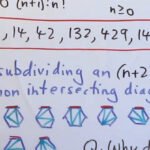 (n+1)!n!  n≥0
, 14, 42, 132, 429, 14
subdividing an (n+2
non intersecting dia